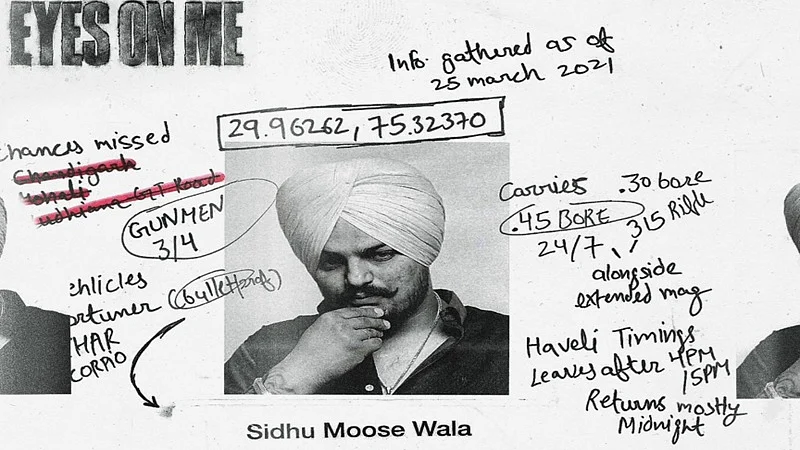 EYES ON ME
Info. gathered as of
25 march 2021
29.96262, 75.32370
Chances missed
Chandigarh
Mohali
udhiana GT Road
GUNMEN
3/4
ehlicles
ortuner (bulletproof)
THAR
CORPIO
Carries .30 bore
.45 BORE 315 Rifle
24/7
alongside
extended mag
Haveli Timings
Leaves after 4PM
/5PM
Returns mostly
Midnight
Sidhu Moose Wala